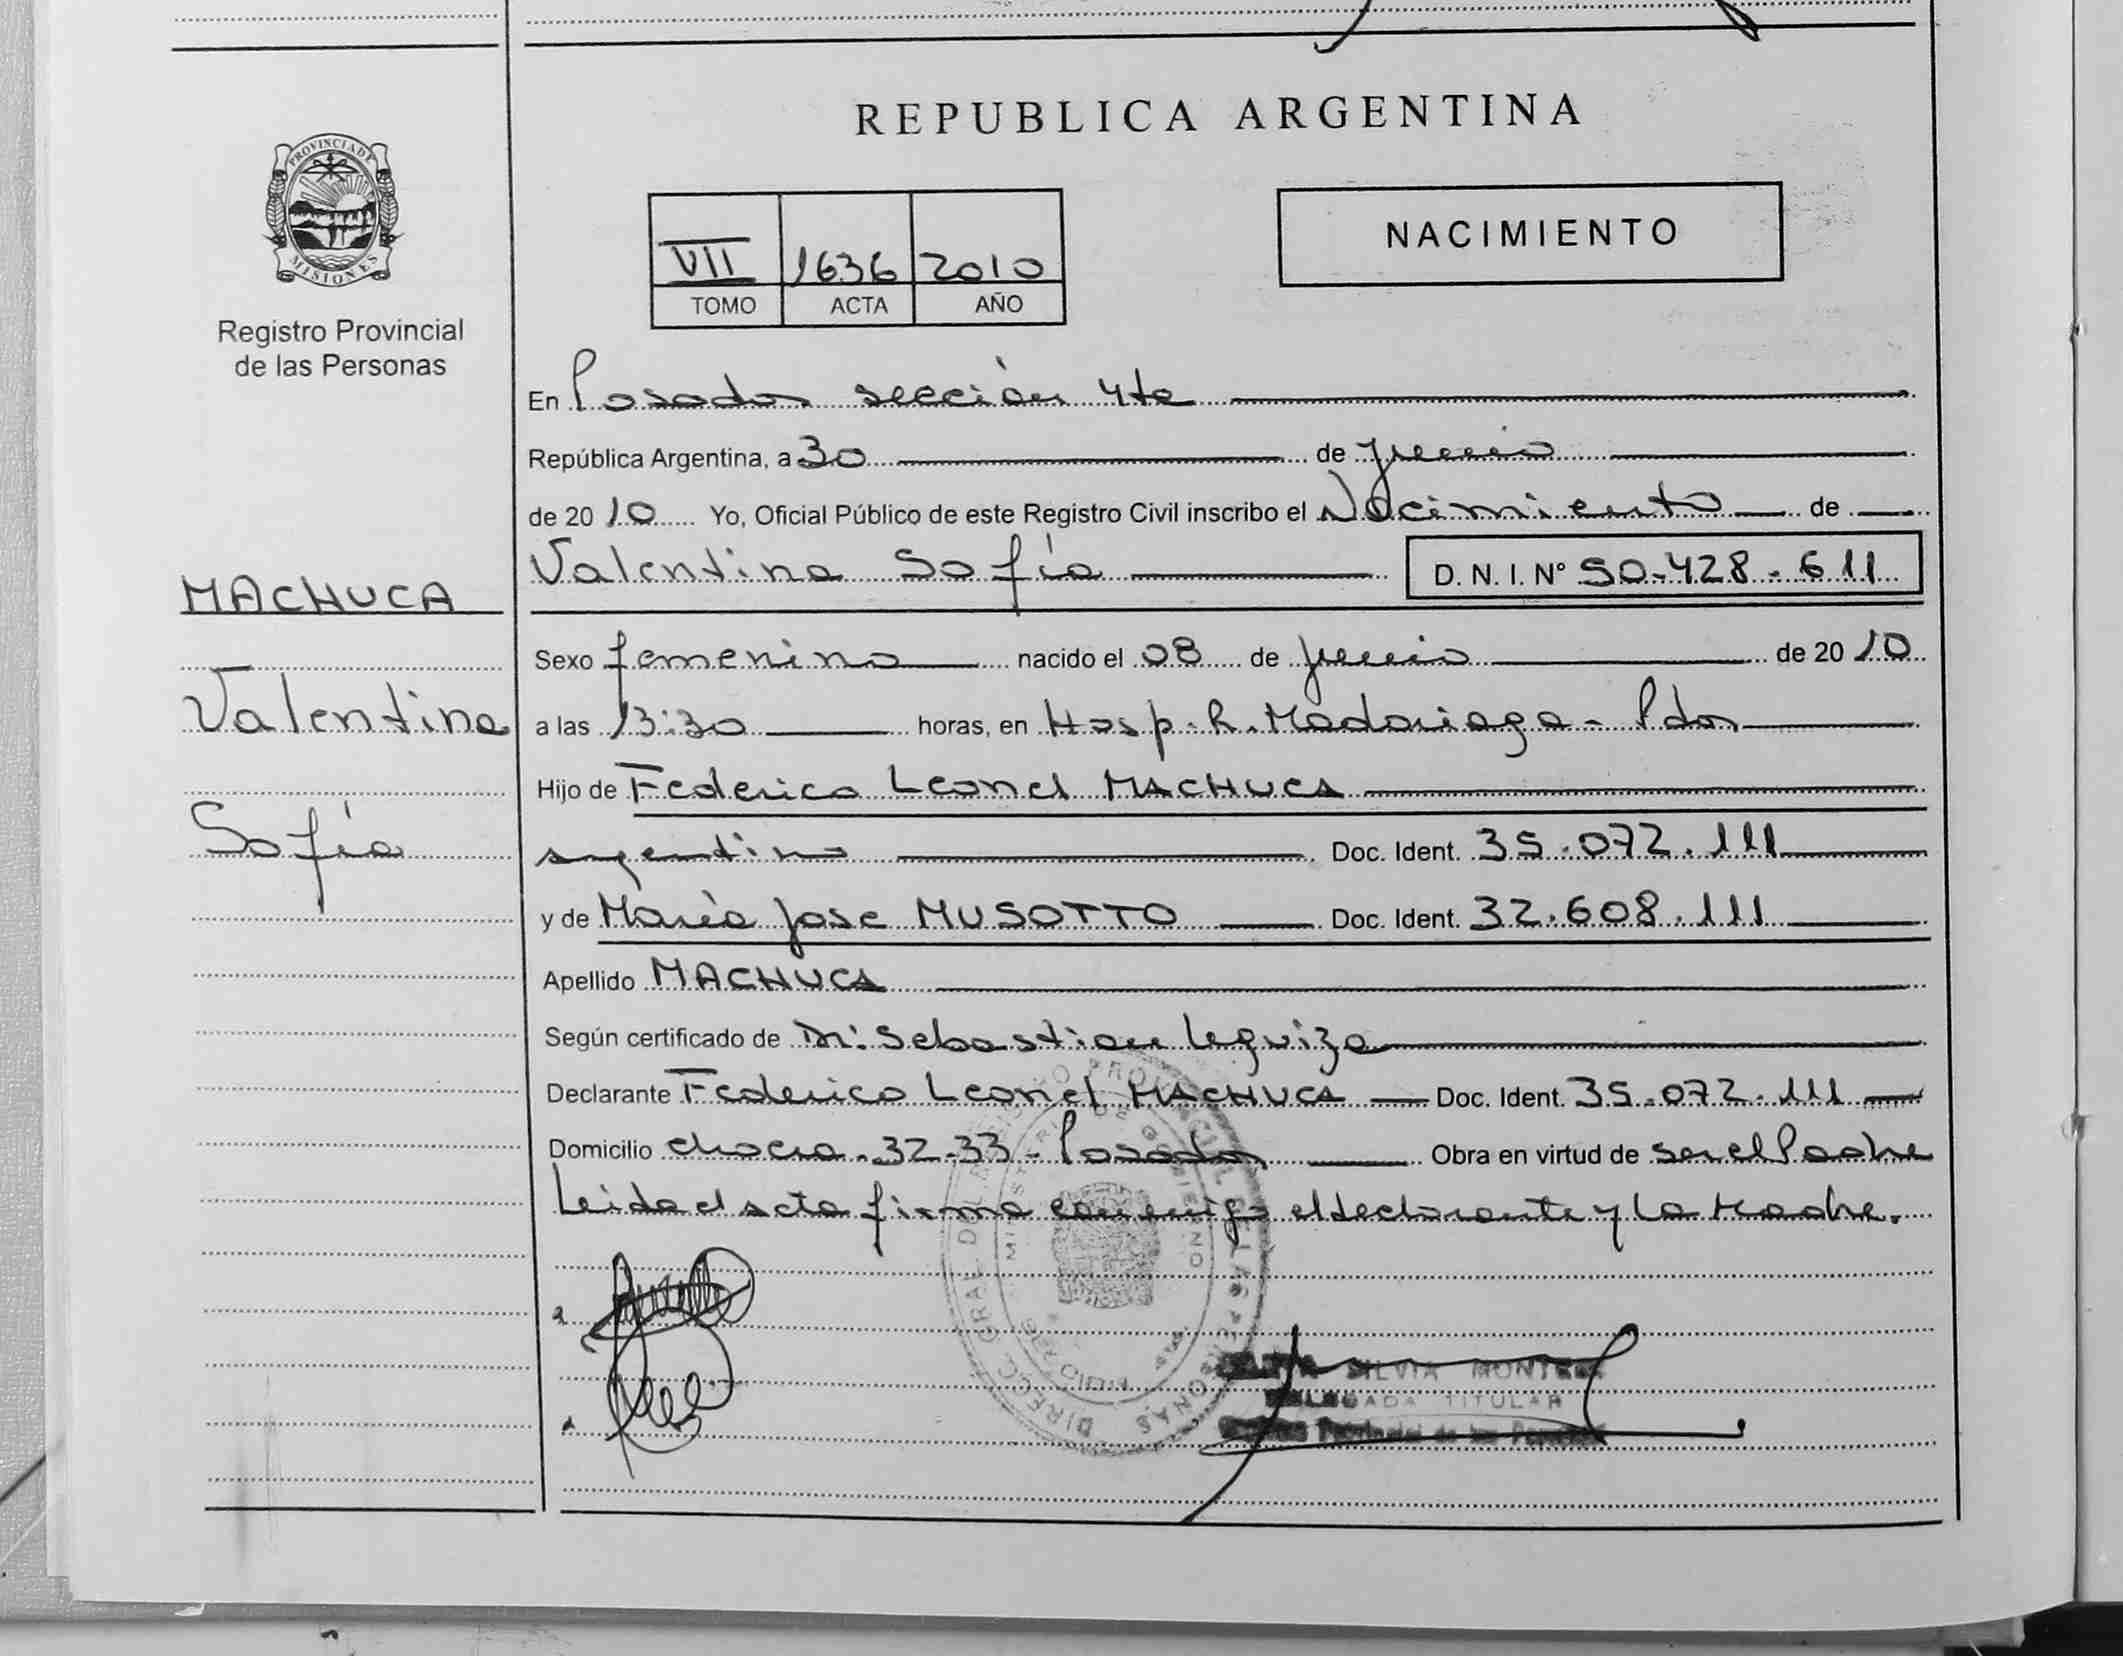 REPUBLICA ARGENTINA
PROVINCIA DE
MISIONES
Registro Provincial
de las Personas
VII 1636 2010
TOMO ACTA AÑO
NACIMIENTO
En Posadas sección 4ta
República Argentina, a 30 de junio
de 2010 Yo, Oficial Público de este Registro Civil inscribo el Nacimiento de
Valentina Sofía D. N. I. Nº 50-428-611
MACHUCA
Valentina
Sofía
Sexo femenino nacido el 08 de junio de 2010
a las 13:30 horas, en Hosp. R. Madariaga - Pdas
Hijo de Federico Leonel MACHUCA
argentino Doc. Ident. 35.072.111
y de María Jose MUSOTTO Doc. Ident. 32.608.111
Apellido MACHUCA
Según certificado de Dr: Sebastian Leguiza
Declarante Federico Leonel MACHUCA Doc. Ident. 35.072.111
Domicilio chacra 32-33 - Posadas Obra en virtud de ser el Padre
Leida el acta firma conmigo el declarante y la Madre.
SILVIA
DELEGADA TITULAR
Provincial de las Personas